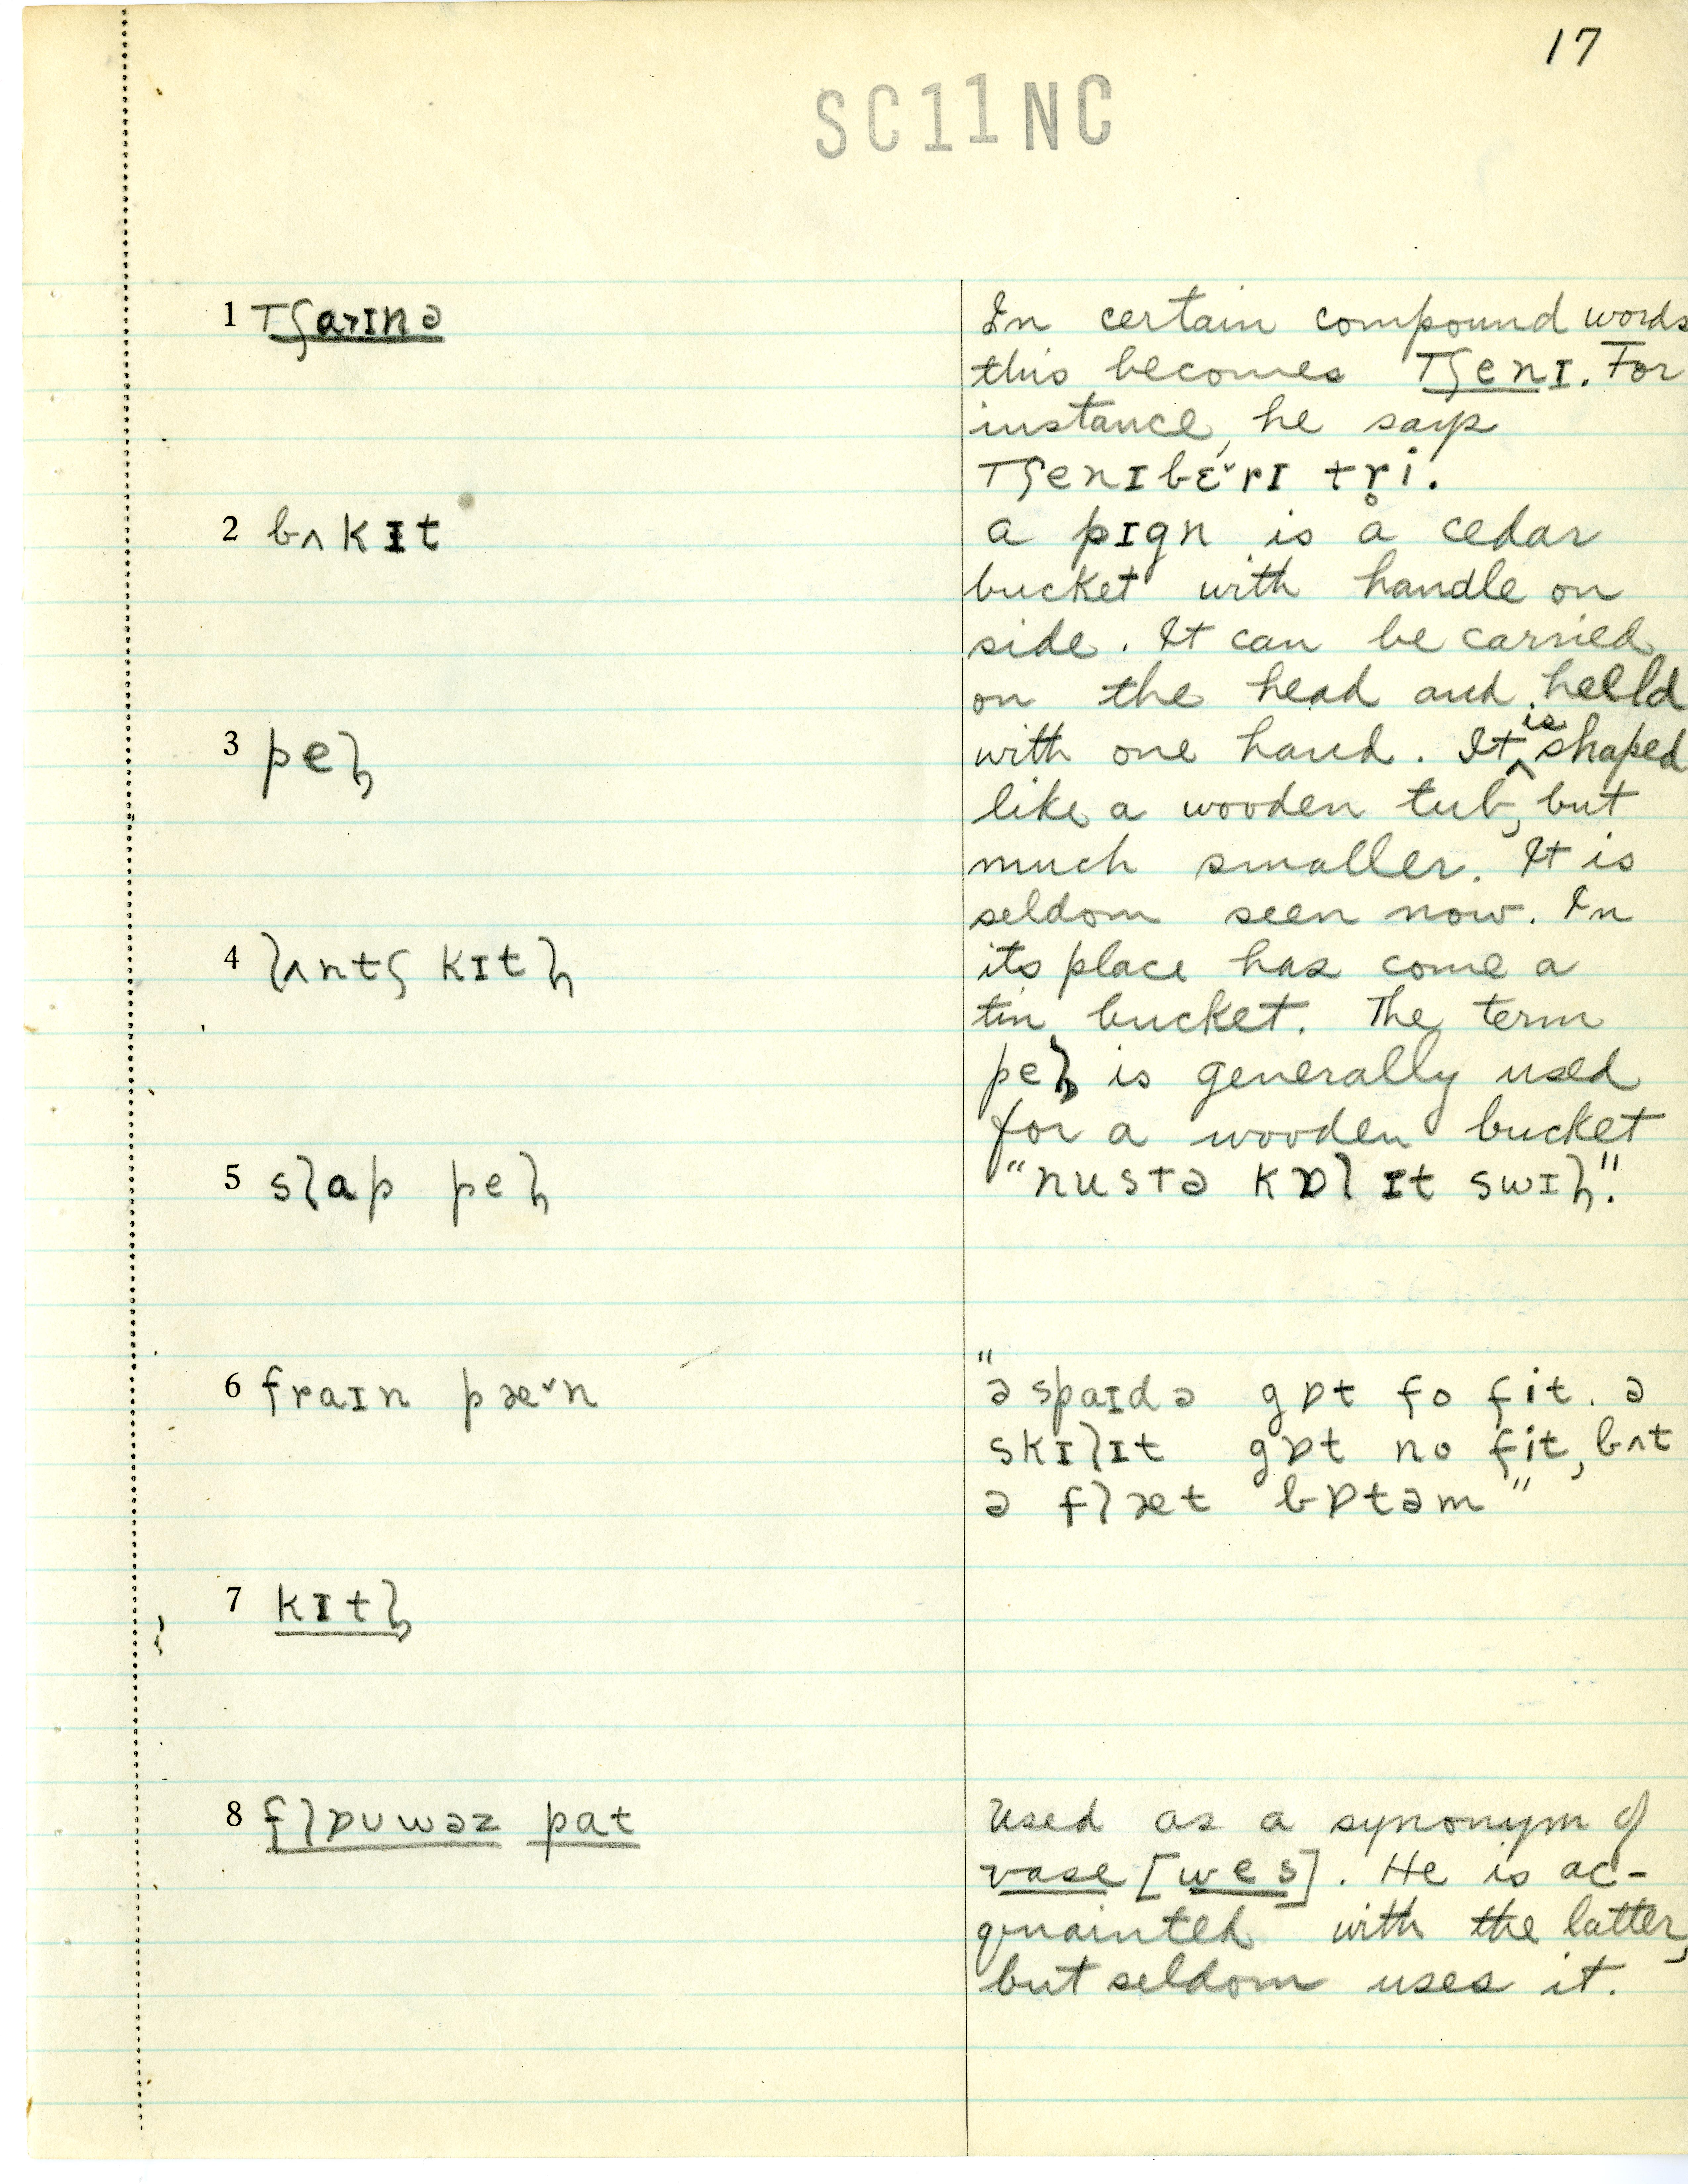 17
SC11NC
1 Tʃaɪnə
In certain compound words
this becomes Tʃenɪ. For
instance, he says
Tʃenɪbɛ́ˇrɪ tr̥i.
2 bʌkɪt
a pɪgn is a cedar
bucket with handle on
side. It can be carried
on the head and helld
3 peɫ
with one hand. It is shaped
like a wooden tub, but
much smaller. It is
seldom seen now. In
4 lʌntʃ kɪtɫ
its place has come a
tin bucket. The term
peɫ is generally used
for a wooden bucket
5 slap peɫ
"nustə kɒl ɪt swɪɫ."
6 fraɪn pæˇn
"ə spaɪdə gɒt fo fit. ə
skɪlɪt gɒt no fit, bʌt
ə flæt bɒtəm"
7 kɪtɫ
8 flɒuwəz pat
Used as a synonym of
vase [wes]. He is ac-
quainted with the latter,
but seldom uses it.